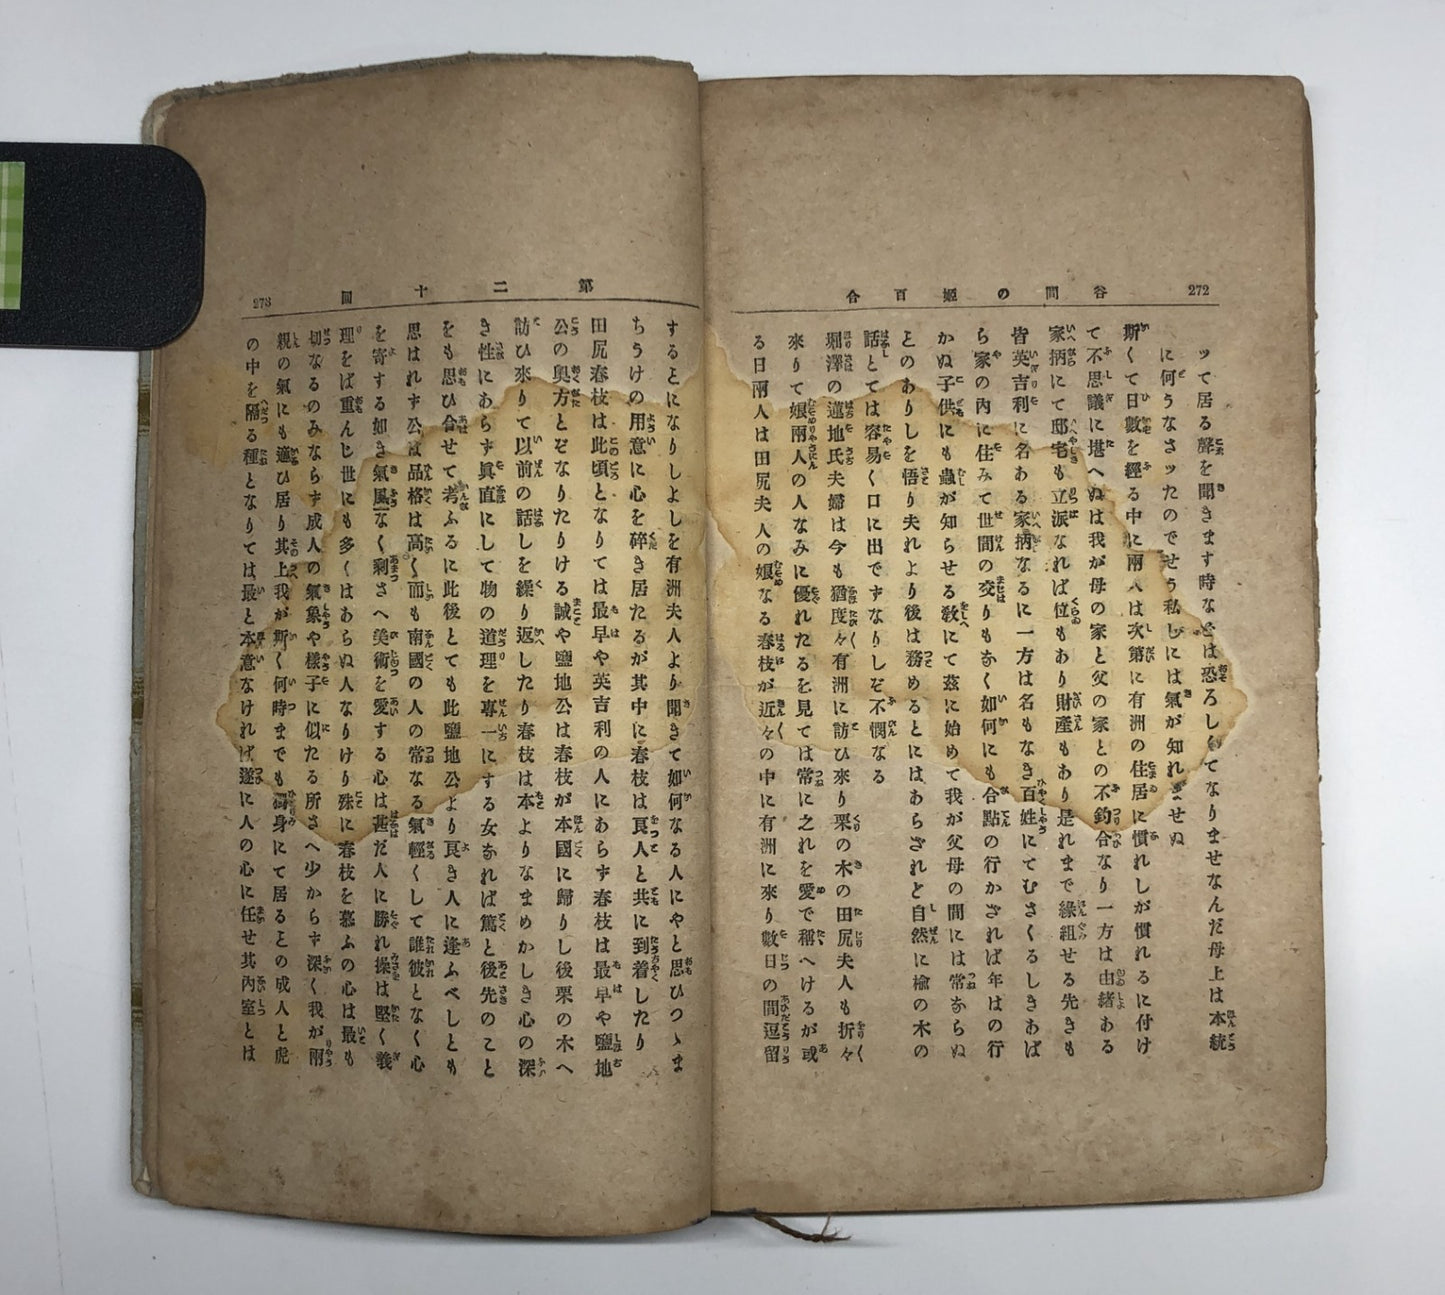 272
谷間の姬百合
ツて居る聲を聞きます時などは恐ろしくてなりませなんだ母上は本統
に何うなさツたのでせう私しには氣が知れませぬ
斯くて日數を經る中に兩人は次第に有洲の住居に慣れしが慣れるに付け
て不思議に堪へぬは我が母の家と父の家との不釣合なり一方は由緒ある
家柄にて邸宅も立派なれば位もあり財產もあり是れまで緣組せる先きも
皆英吉利に名ある家柄なるに一方は名もなき百姓にてむさくるしきあば
ら家の內に住みて世間の交りもなく如何にも合點の行かざれば年はの行
かぬ子供にも蟲が知らせる敎にて茲に始めて我が父母の間には常ならぬ
とのありしを悟り夫れより後は務めるとにはあらざれど自然に楡の木の
話とては容易く口に出でずなりしぞ不憫なる
堀澤の蓮地氏夫婦は今も猶度々有洲に訪ひ來り栗の木の田尻夫人も折々
來りて娘兩人の人なみに優れたるを見ては常に之れを愛で稱へけるが或
る日兩人は田尻夫人の娘なる春枝が近々の中に有洲に來り數日の間逗留
第二十回
273
するとになりしよしを有洲夫人より聞きて如何なる人にやと思ひつゝま
ちうけの用意に心を碎き居たるが其中に春枝は良人と共に到着したり
田尻春枝は此頃となりては最早や英吉利の人にあらず春枝は最早や鹽地
公の奧方とぞなりたりける誠や鹽地公は春枝が本國に歸りし後栗の木へ
訪ひ來りて以前の話しを繰り返したり春枝は本よりなまめかしき心の深
き性にあらず眞直にして物の道理を專一にする女なれば篤と後先のこと
をも思ひ合せて考ふるに此後とても此鹽地公より良き人に逢ふべしとも
思はれず公は品格は高く而も南國の人の常なる氣輕くして誰彼となく心
を寄する如き氣風なく剩さへ美術を愛する心は甚だ人に勝れ操は堅く義
理をば重んじ世にも多くはあらぬ人なりけり殊に春枝を慕ふの心は最も
切なるのみならず成人の氣象や樣子に似たる所さへ少からず深く我が兩
親の氣にも適ひ居り其上我が斯く何時までも獨身にて居るとの成人と虎
の中を隔る種となりては最と本意なければ遂に人の心に任せ其內室とは